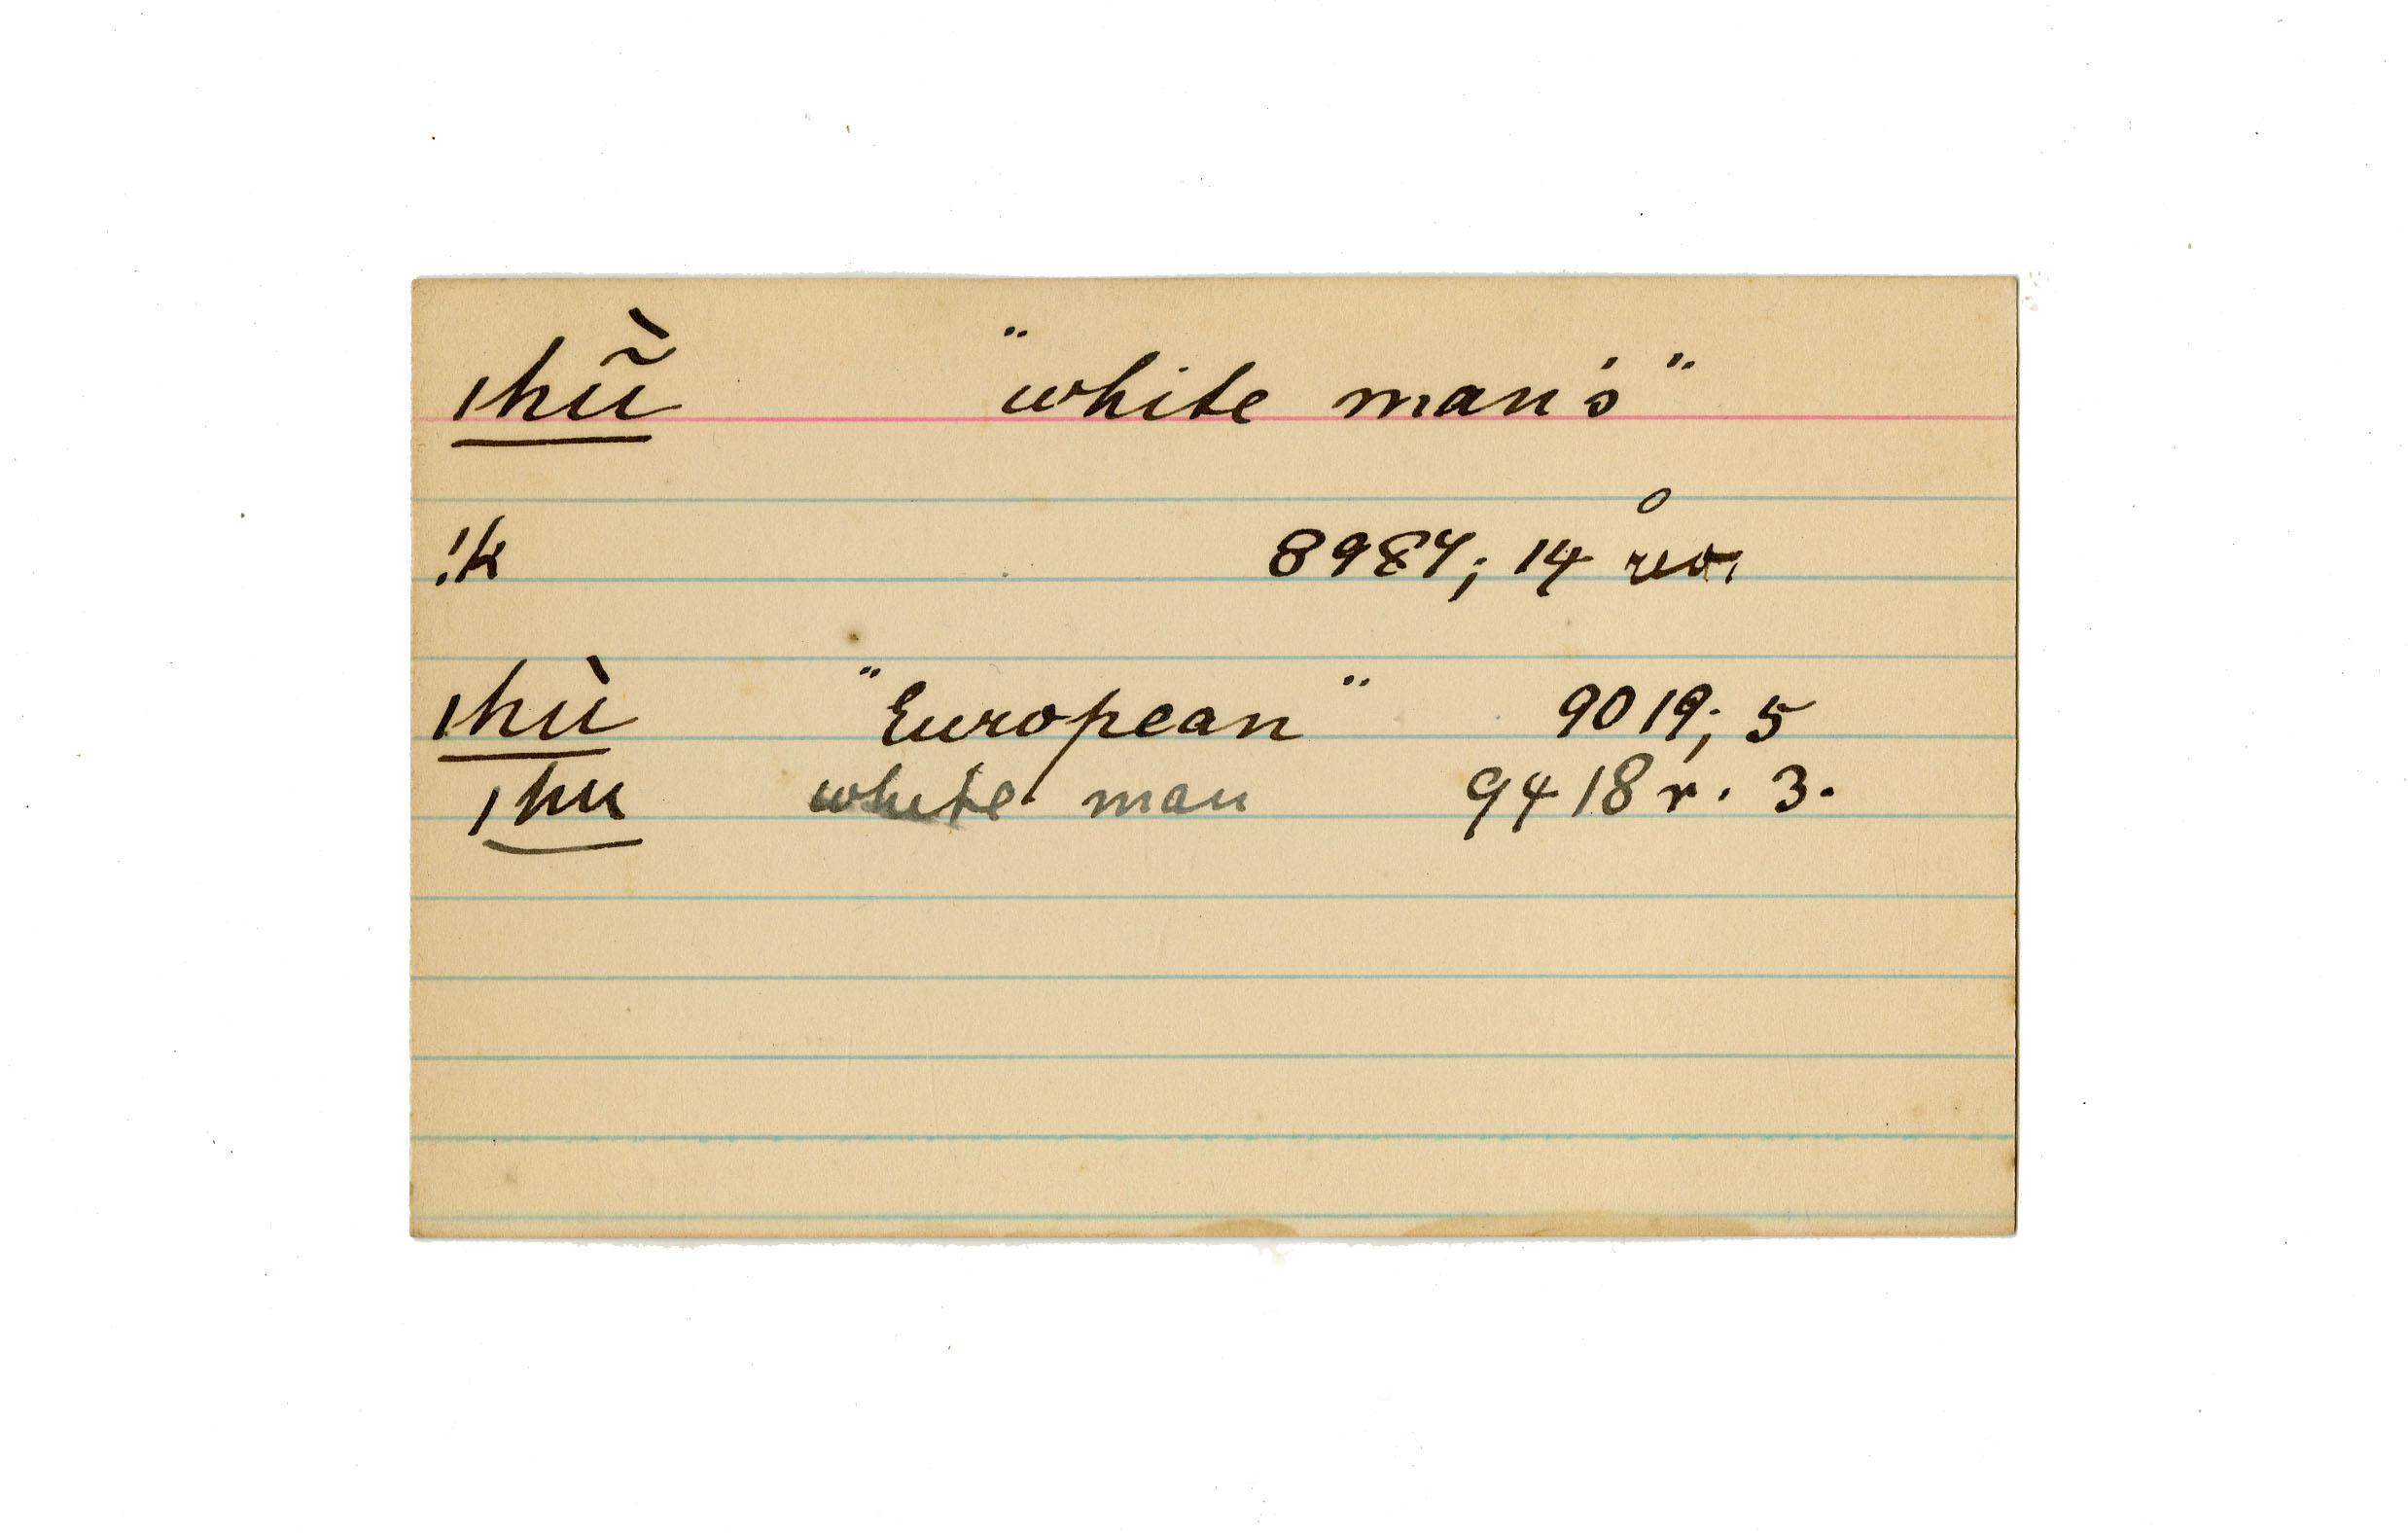 ǀhũ̀ "white man's"
!k 8987; 14 rev.
ǀhù "European" 9019; 5
ǀhu white man 9418 r. 3.